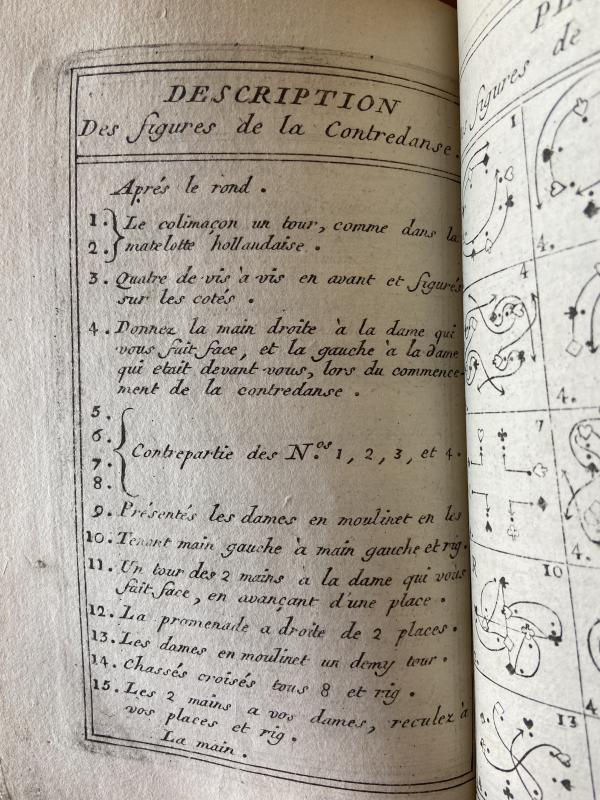 DESCRIPTION
Des figures de la Contredanse.
Aprés le rond.
1. Le colimaçon un tour, comme dans la
2. matelotte hollandaise.
3. Quatre de vis à vis en avant et figurés
sur les cotés.
4. Donnez la main droite à la dame qui
vous fait face, et la gauche à la dame
qui etait devant vous, lors du commence-
ment de la contredanse.
5.
6.
7.
8.
Contrepartie des N.os 1, 2, 3, et 4.
9. Présentés les dames en moulinet en les
10. Tenant main gauche à main gauche et rig.
11. Un tour des 2 mains a la dame qui vous
fait face, en avançant d'une place.
12. La promenade a droite de 2 places.
13. Les dames en moulinet un demy tour.
14. Chassés croisés tous 8 et rig.
15. Les 2 mains a vos dames, reculez à
vos places et rig.
La main.
figures de
1
4.
4
4.
7
4.
10
4
13